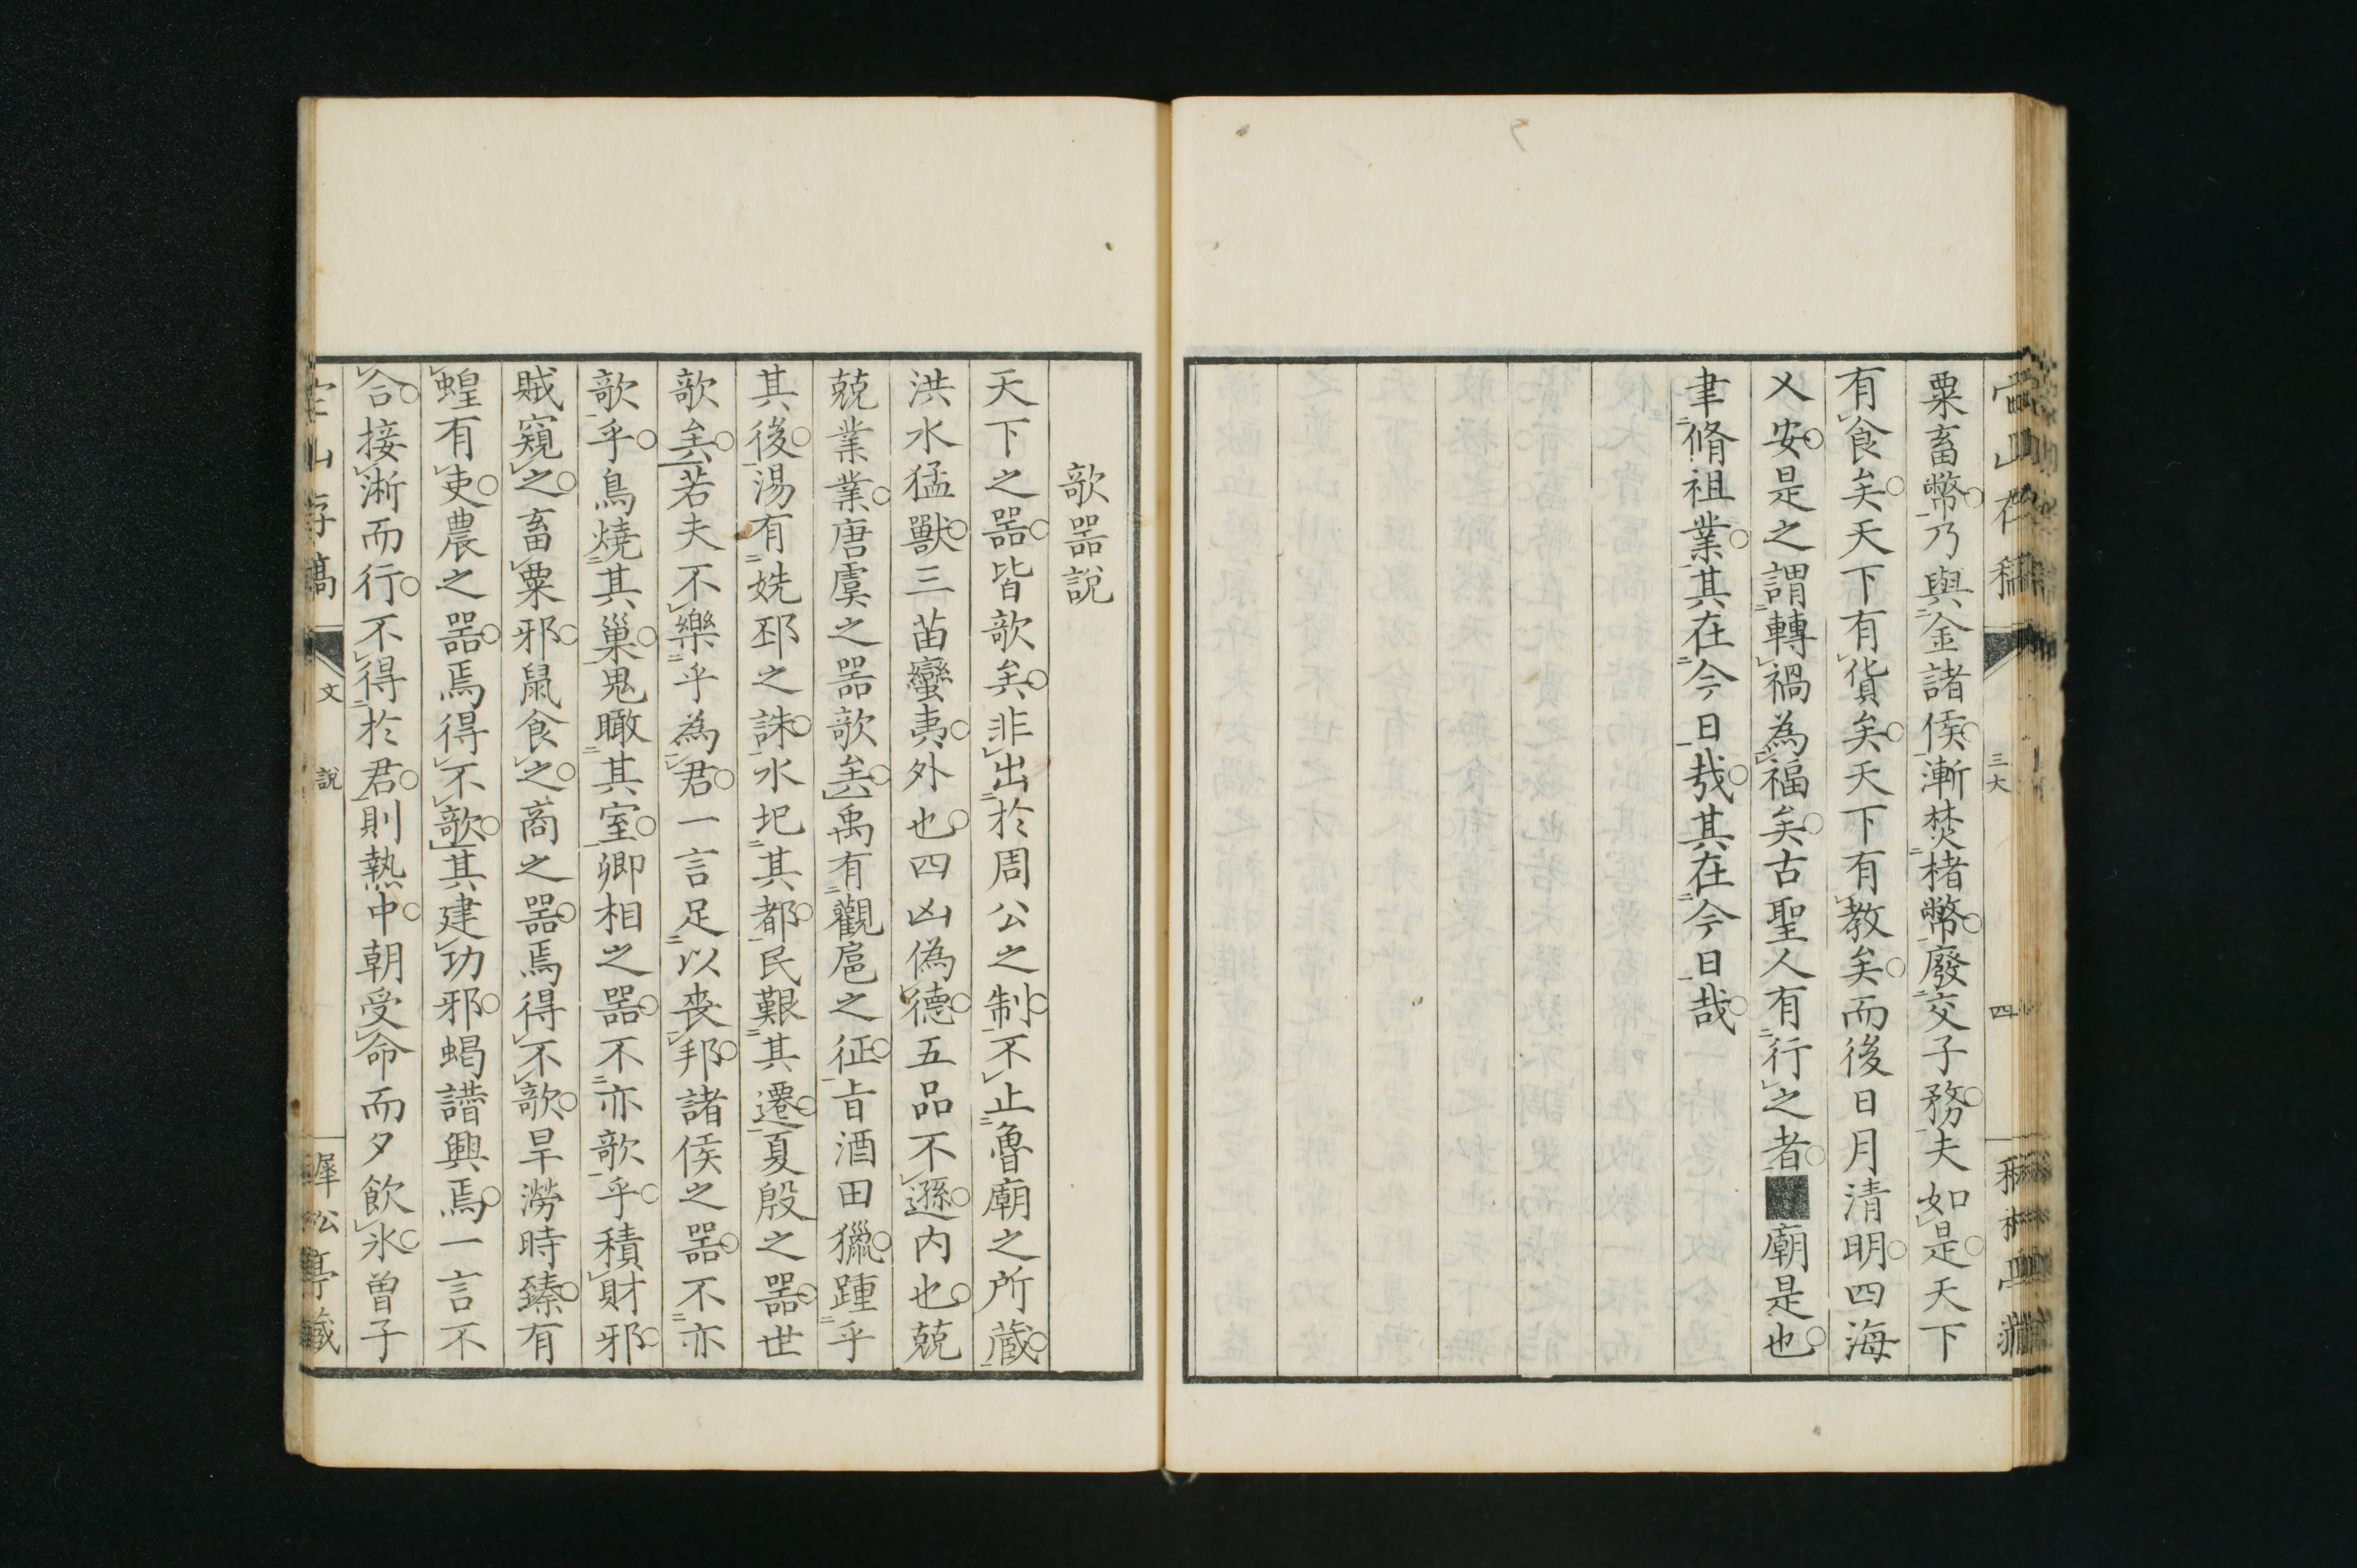 粟畜幣乃與金諸侯漸焚楮幣廢交子務夫如是天下
有食矣天下有貨矣天下有教矣而後日月清明四海
乂安是之謂轉禍為福矣古聖人有行之者■廟是也
聿脩祖業其在今日哉其在今日哉
三大
四
欹器說
天下之器皆欹矣非出於周公之制不止魯廟之所蔵
洪水猛獸三苗蠻夷外也四凶偽德五品不遜内也兢
兢業業唐虞之器欹矣禹有觀扈之征旨酒田獵踵乎
其後湯有姺邳之誅水圯其都民艱其遷夏殷之器世
欹矣若夫不樂乎為君一言足以喪邦諸侯之器不亦
欹乎鳥燒其巢鬼瞰其室卿相之器不亦欹乎積財邪
賊窺之畜粟邪鼠食之商之器焉得不欹旱澇時臻有
蝗有吏農之器焉得不欹其建功邪蝎譖興焉一言不
合接淅而行不得於君則熱中朝受命而夕飲氷曽子
山存稿
文
說
犀松亭蔵